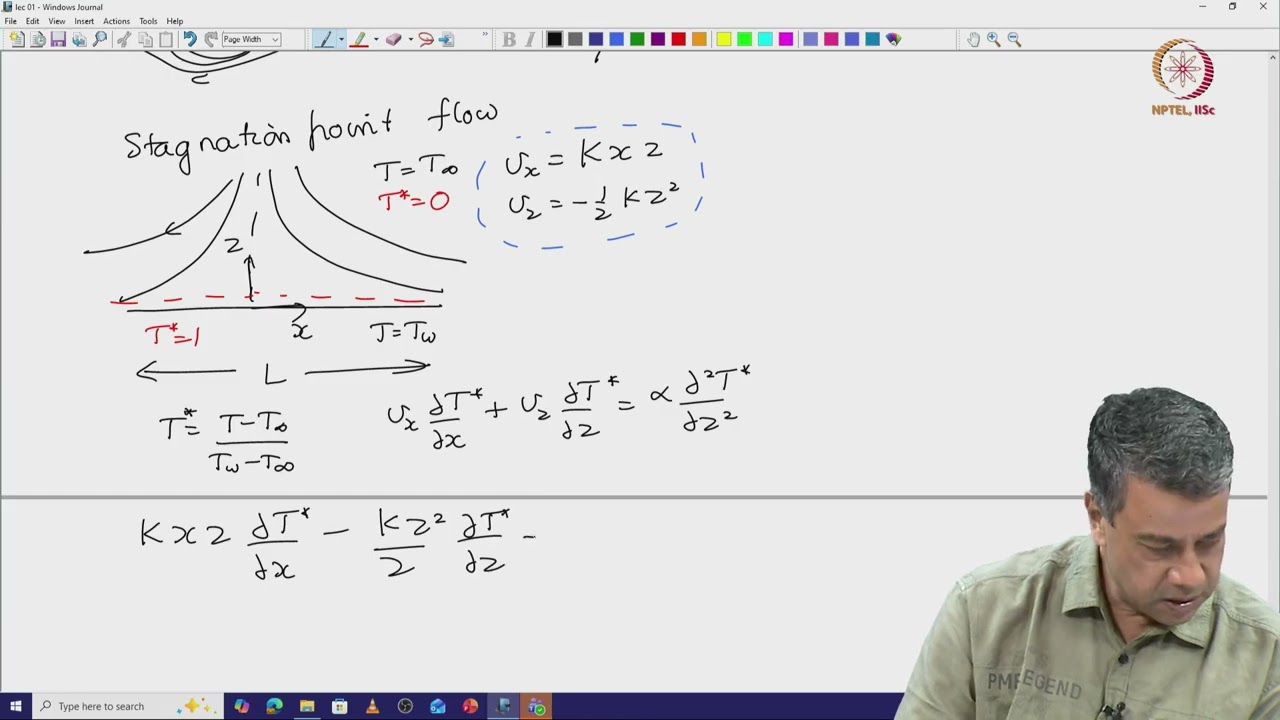 lec 01 - Windows Journal
File Edit View Insert Actions Tools Help
Page Width
B I
NPTEL, IISc
Stagnation point flow
T = T∞
T* = 0
υx = K x z
υz = -1/2 K z²
z
T* = 1
x
T = Tw
L
T* = (T - T∞)/(Tw - T∞)
υx ∂T*/∂x + υz ∂T*/∂z = α ∂²T*/∂z²
K x z ∂T*/∂x - K z²/2 ∂T*/∂z -
Type here to search